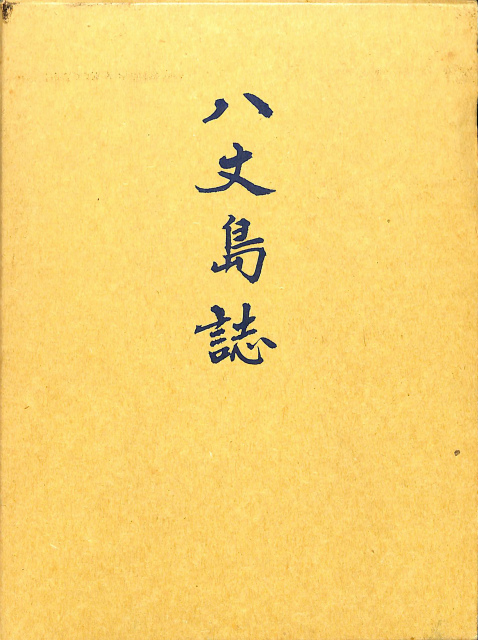 八丈島誌